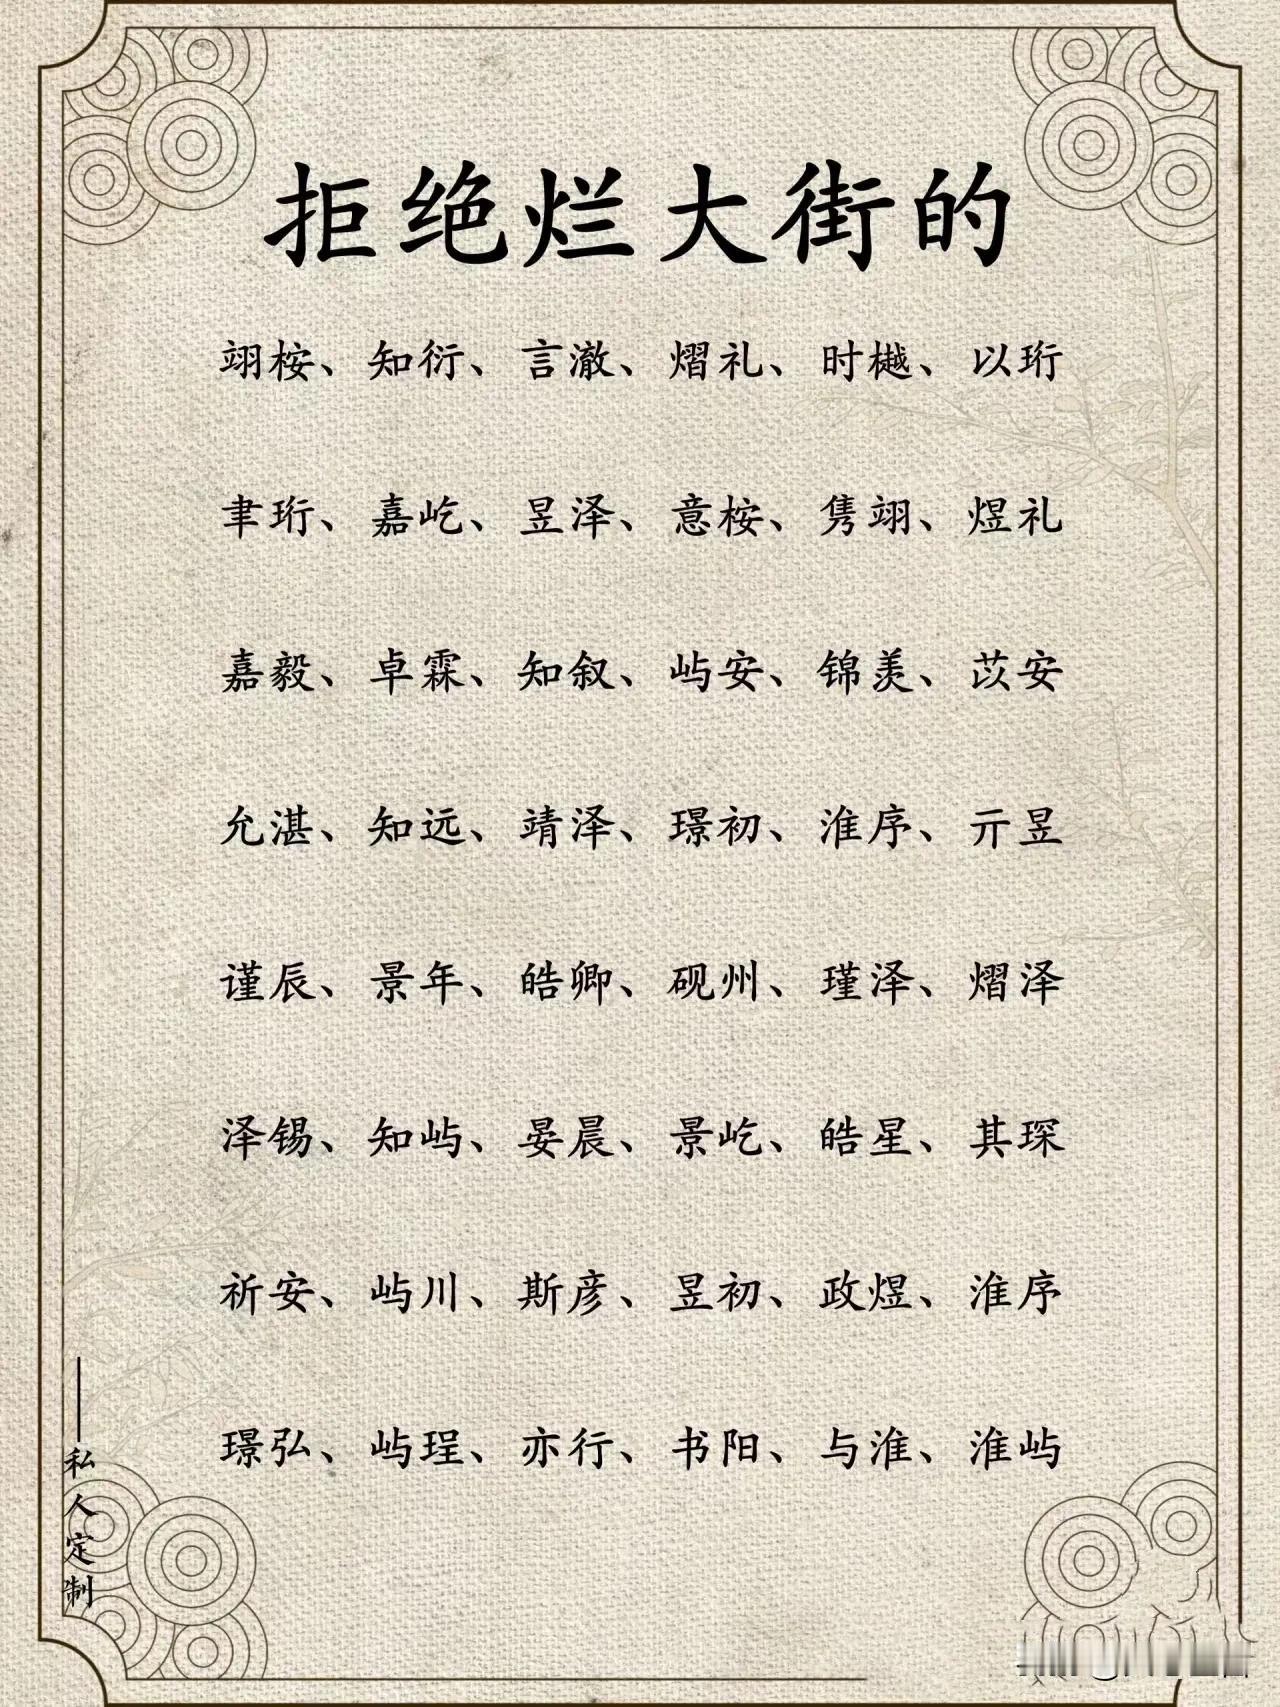 拒绝烂大街的
翊桉、知衍、言澈、熠礼、时樾、以珩
聿珩、嘉屹、昱泽、意桉、隽翊、煜礼
嘉毅、卓霖、知叙、屿安、锦羙、苡安
允湛、知远、靖泽、璟初、淮序、亓昱
谨辰、景年、皓卿、砚州、瑾泽、熠泽
泽锡、知屿、晏晨、景屹、皓星、其琛
祈安、屿川、斯彦、昱初、政煜、淮序
璟弘、屿珵、亦行、书阳、与淮、淮屿
——私人定制